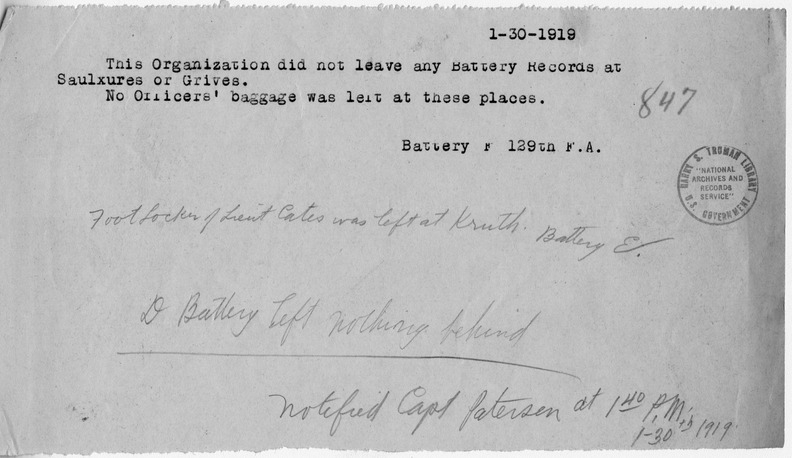 1-30-1919
This Organization did not leave any Battery Records at
Saulxures or Grives.
No Officers' baggage was left at these places.
847
Battery F 129th F.A.
HARRY S. TRUMAN LIBRARY
"NATIONAL
ARCHIVES AND
RECORDS
SERVICE"
U.S. GOVERNMENT
Foot Locker of Lieut Cates was left at Kruth. Battery E.
D Battery left nothing behind
Notified Capt Patersen at 1 40 P.M.
1-30th 1919.